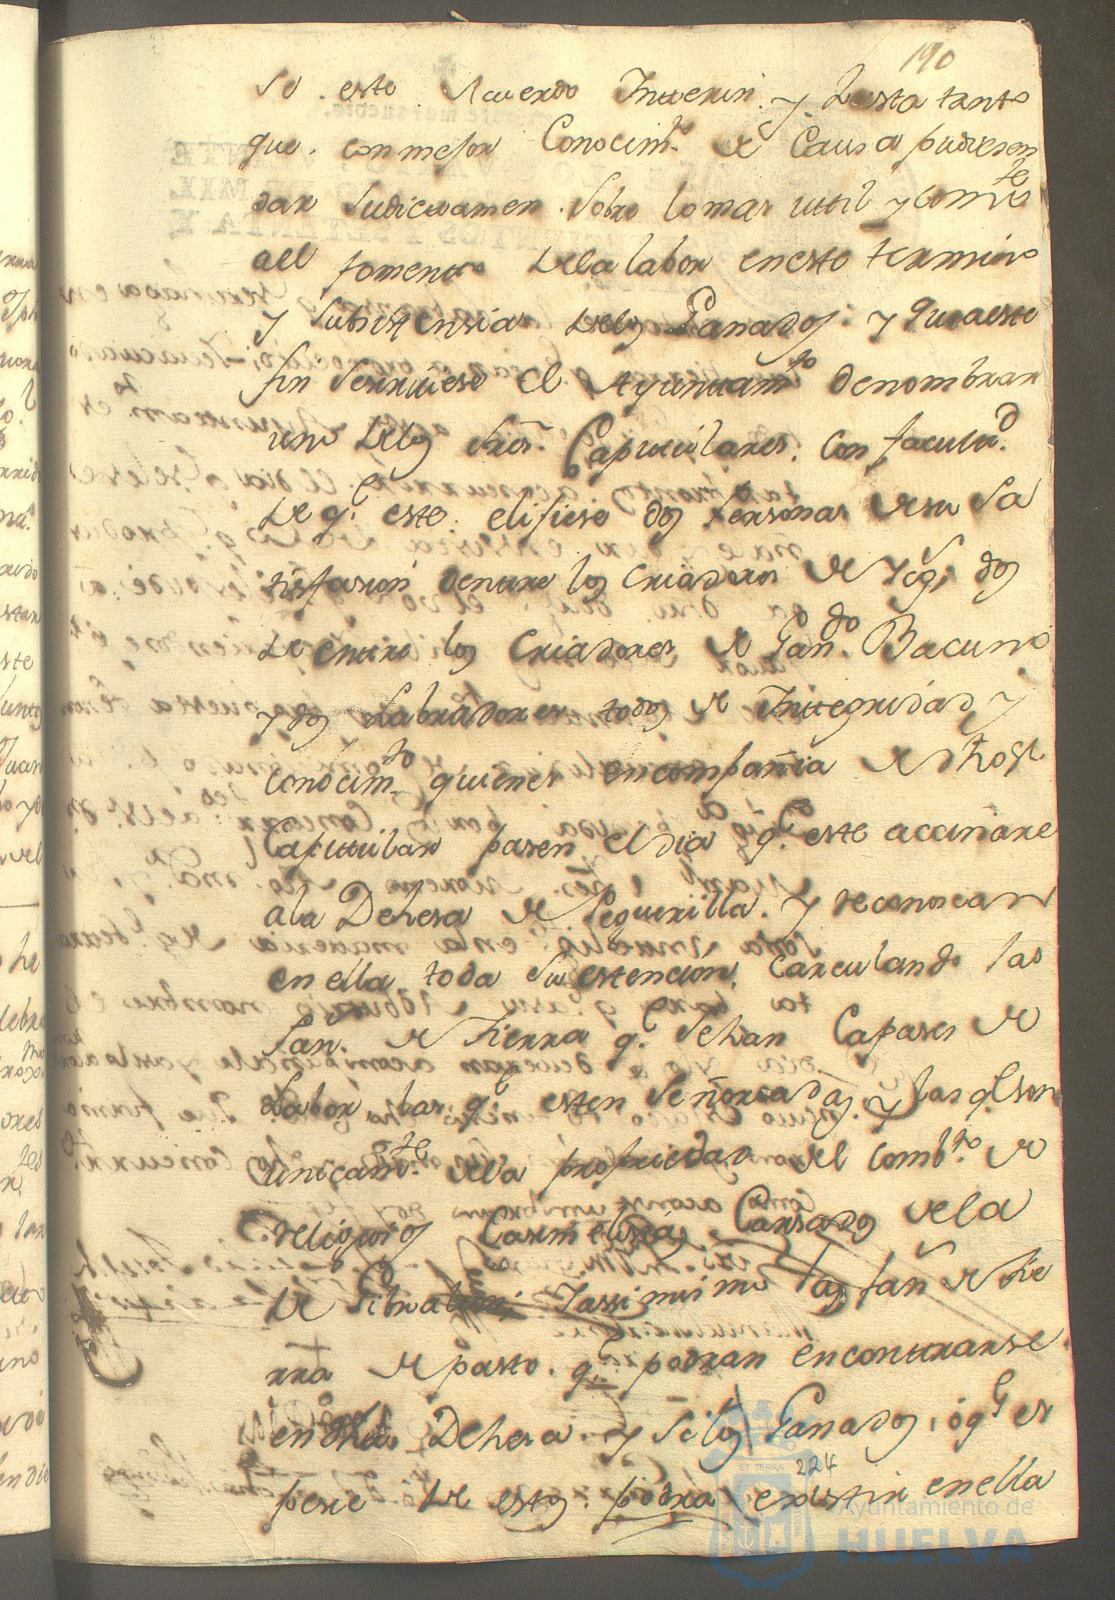 190
se este Acuerdo Interin. y hasta tanto
que. con mejor Conocimto. de Causa pudiesen
dar su dictamen. sobre lo mas util y comte
all fomento dela labor en este termino
y subsistensia delos Ganados. y que aeste
fin serviiese el Ayuntamto denombrar
uno delos Sres. Capitulares. con facultd.
de q. este. elijiese dos Personas desu Sa
tisfasion dentre los criadores de Yegs. dos
de entre los criadores de Gando. Bacuno
y dos Labradores todos de Integridad y
conocimto. quienes encompañia de dho Sr
Capitular pasen el dia q. este
ala Dehesa de Peguerilla. y reconoscan
en ella toda su estencion, carculando las
fan. de Tierra q. Sehan Capases de
Labor las q. esten Señoreadas, y las q. son
unicamte. dela propriedad del Combto. de
Religiosos Carmelitas Calsados dela
de Gibraleon; Tassimismo las fan de tie
rra de pasto. q. podran encontrarse
en dha Dehesa. y si los Ganados, o q. es
pecie de estos. podra existir en ella
224
Ayuntamiento de
HUELVA